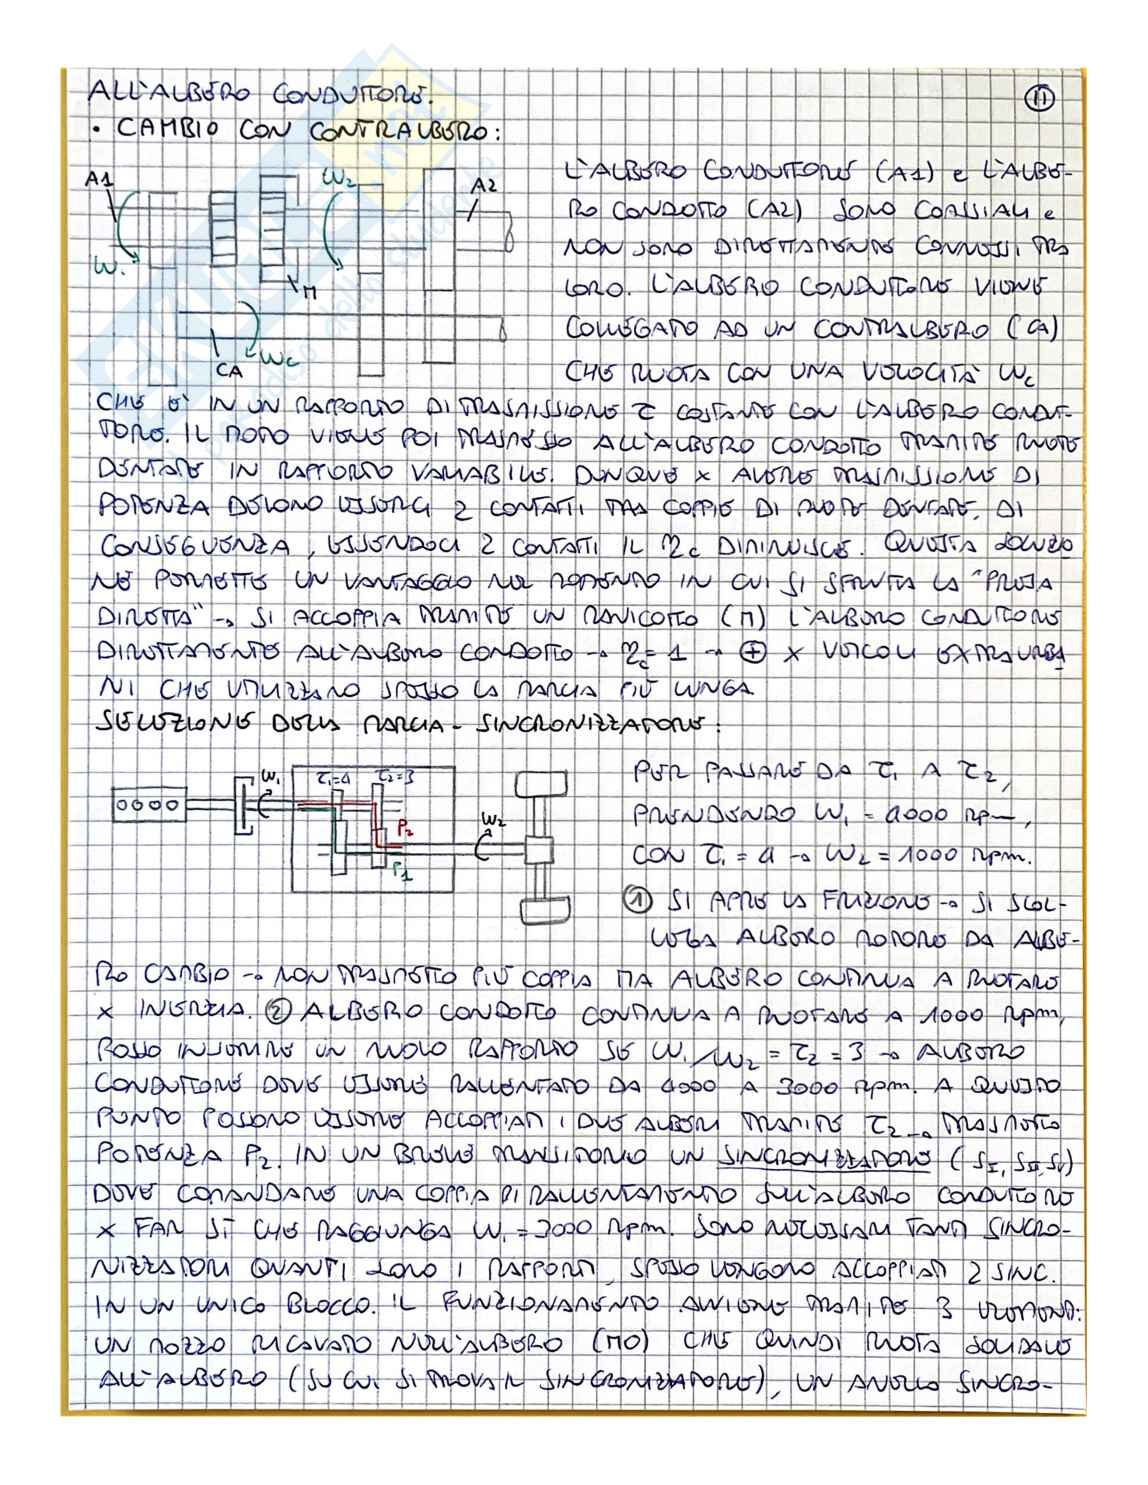 ALL'ALBERO CONDUTTORE.
11
• CAMBIO CON CONTRALBERO:
A1
W2
A2
W1
M
CA
Wc
L'ALBERO CONDUTTORE (A1) e L'ALBE-
RO CONDOTTO (A2) SONO COASSIALI e
NON SONO DIRETTAMENTE CONNESSI TRA
LORO. L'ALBERO CONDUTTORE VIENE
COLLEGATO AD UN CONTRALBERO (CA)
CHE RUOTA CON UNA VELOCITÀ Wc
CHE E' IN UN RAPPORTO DI TRASMISSIONE τ COSTANTE CON L'ALBERO CONDUT-
TORE. IL MOTO VIENE POI TRASMESSO ALL'ALBERO CONDOTTO TRAMITE RUOTE
DENTATE IN RAPPORTO VARIABILE. DUNQUE x AVERE TRASMISSIONE DI
POTENZA DEVONO ESSERCI 2 CONTATTI TRA COPPIE DI RUOTE DENTATE. DI
CONSEGUENZA, ESSENDOCI 2 CONTATTI IL ηc DIMINUISCE. QUESTA SOLUZIO
NE PERMETTE UN VANTAGGIO NEL MOMENTO IN CUI SI SFRUTTA LA "PRESA
DIRETTA" → SI ACCOPPIA TRAMITE UN MANICOTTO (M) L'ALBERO CONDUTTORE
DIRETTAMENTE ALL'ALBERO CONDOTTO → ηc = 1 → ⊕ x VEICOLI EXTRAURBA
NI CHE UTILIZZANO SPESSO LA MARCIA PIÙ LUNGA
SELEZIONE DELLA MARCIA - SINCRONIZZATORE:
W1
τ1=4
τ2=3
P2
P1
W2
PER PASSARE DA τ1 A τ2,
PRENDENDO W1 = 4000 rpm,
CON τ1 = 4 → W2 = 1000 rpm.
① SI APRE LA FRIZIONE → SI SCOL-
LEGA ALBERO MOTORE DA ALBE-
RO CAMBIO → NON TRASMETTO PIÙ COPPIA MA ALBERO CONTINUA A RUOTARE
x INERZIA. ② ALBERO CONDOTTO CONTINUA A RUOTARE A 1000 rpm,
POSSO INSERIRE UN NUOVO RAPPORTO SE W1/W2 = τ2 = 3 → ALBERO
CONDUTTORE DEVE ESSERE RALLENTATO DA 4000 A 3000 rpm. A QUESTO
PUNTO POSSONO ESSERE ACCOPPIATI I DUE ALBERI TRAMITE τ2 → TRASMETTO
POTENZA P2. IN UN BREVE TRANSITORIO UN SINCRONIZZATORE (SI, SII, SV)
DEVE COMANDARE UNA COPPIA DI RALLENTAMENTO SULL'ALBERO CONDUTTORE
x FAR SÌ CHE RAGGIUNGA W1 = 3000 rpm. SONO NECESSARI TANTI SINCRO-
NIZZATORI QUANTI SONO I RAPPORTI, SPESSO VENGONO ACCOPPIATI 2 SINC.
IN UN UNICO BLOCCO. IL FUNZIONAMENTO AVVIENE TRAMITE 3 ELEMENTI:
UN MOZZO RICAVATO NELL'ALBERO (MO) CHE QUINDI RUOTA SOLIDALE
ALL'ALBERO (SU CUI SI TROVA IL SINCRONIZZATORE), UN ANELLO SINCRO-